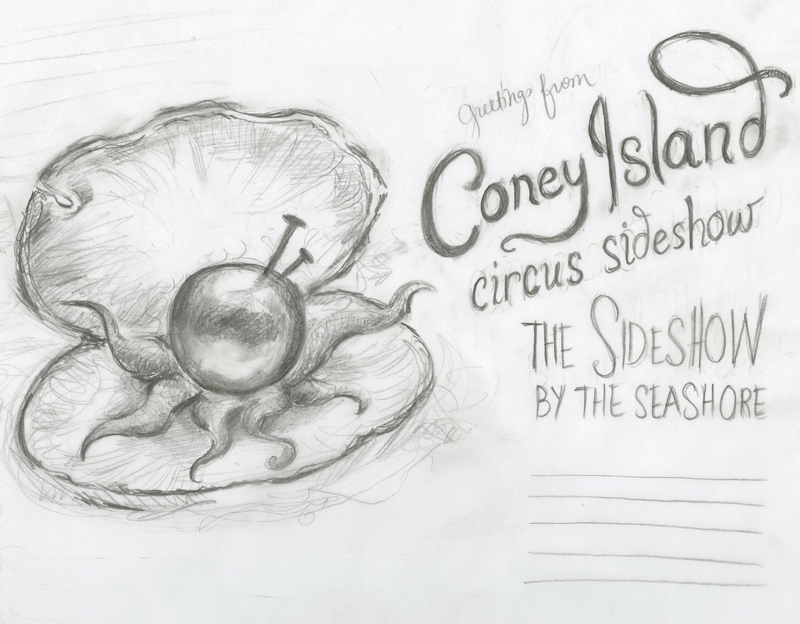 greetings from
Coney Island
circus sideshow
THE SIDESHOW
BY THE SEASHORE